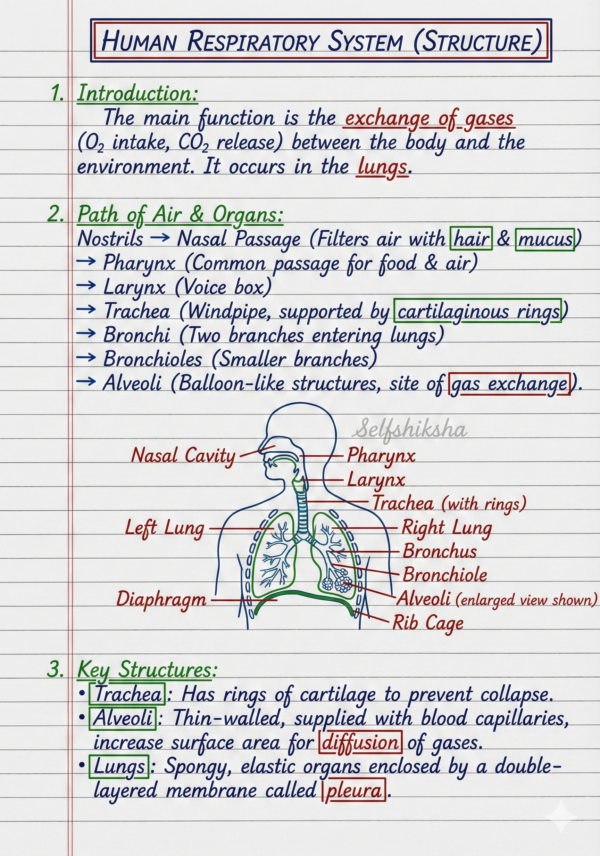 HUMAN RESPIRATORY SYSTEM (STRUCTURE)
1. Introduction:
The main function is the exchange of gases
(O₂ intake, CO₂ release) between the body and the
environment. It occurs in the lungs.
2. Path of Air & Organs:
Nostrils → Nasal Passage (Filters air with hair & mucus)
→ Pharynx (Common passage for food & air)
→ Larynx (Voice box)
→ Trachea (Windpipe, supported by cartilaginous rings)
→ Bronchi (Two branches entering lungs)
→ Bronchioles (Smaller branches)
→ Alveoli (Balloon-like structures, site of gas exchange).
Selfshiksha
Nasal Cavity
Pharynx
Larynx
Trachea (with rings)
Left Lung
Right Lung
Bronchus
Bronchiole
Diaphragm
Alveoli (enlarged view shown)
Rib Cage
3. Key Structures:
• Trachea: Has rings of cartilage to prevent collapse.
• Alveoli: Thin-walled, supplied with blood capillaries,
increase surface area for diffusion of gases.
• Lungs: Spongy, elastic organs enclosed by a double-
layered membrane called pleura.